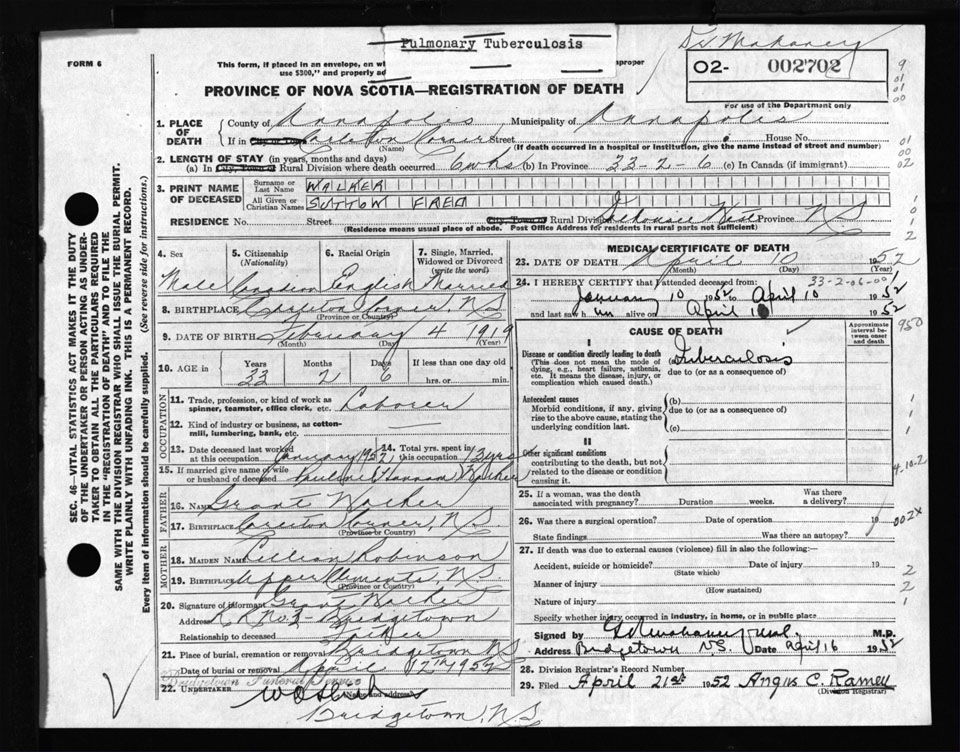 Pulmonary Tuberculosis
Dr. Mahaney
FORM 6
This form, if placed in an envelope, on wh
use $300," and properly ad
proper
02- 002702
For use of the Department only
PROVINCE OF NOVA SCOTIA—REGISTRATION OF DEATH
1. PLACE OF DEATH
County of Annapolis Municipality of Annapolis
If in City, Town or Carleton Corner Street House No.
(Name) (If death occurred in a hospital or institution, give the name instead of street and number)
2. LENGTH OF STAY (in years, months and days)
(a) In City, Town or Rural Division where death occurred 6 wks (b) In Province 33-2-6 (c) In Canada (if immigrant)
3. PRINT NAME OF DECEASED
Surname or Last Name WALKER
All Given or Christian Names SUTTON FRED
RESIDENCE No. Street City, Town or Rural Division Dalhousie West Province N.S.
(Residence means usual place of abode. Post Office Address for residents in rural parts not sufficient)
4. Sex Male
5. Citizenship (Nationality) Canadian
6. Racial Origin English
7. Single, Married, Widowed or Divorced (write the word) Married
8. BIRTHPLACE Carleton Corner, N.S.
(Province or Country)
9. DATE OF BIRTH February 4 1919
(Month) (Day) (Year)
10. AGE in Years 33 Months 2 Days 6 If less than one day old
hrs. or min.
OCCUPATION
11. Trade, profession, or kind of work as spinner, teamster, office clerk, etc. Laborer
12. Kind of industry or business, as cotton-mill, lumbering, bank, etc.
13. Date deceased last worked at this occupation January 1952
14. Total yrs. spent in this occupation 13 yrs
15. If married give name of wife or husband of deceased Walker
FATHER
16. NAME Grant Walker
17. BIRTHPLACE Carleton Corner, N.S.
(Province or Country)
MOTHER
18. MAIDEN NAME Lillian Robinson
19. BIRTHPLACE Upper Clements, N.S.
(Province or Country)
20. Signature of informant Grant Walker
Address R R No. 3 Bridgetown
Relationship to deceased Father
21. Place of burial, cremation or removal Bridgetown N.S.
Date of burial or removal April 12th 1952
Bridgetown Funeral Service
22. UNDERTAKER
(Name and address)
Bridgetown, N.S.
MEDICAL CERTIFICATE OF DEATH
23. DATE OF DEATH April 10 1952
(Month) (Day) (Year)
33-2-06-00
24. I HEREBY CERTIFY that I attended deceased from:
January 10 1952 to April 10 1952
and last saw h im alive on April 10 1952
CAUSE OF DEATH
Approximate interval between onset and death
I
Disease or condition directly leading to death
(This does not mean the mode of dying, e.g., heart failure, asthenia, etc. It means the disease, injury, or complication which caused death.)
(a) Tuberculosis
due to (or as a consequence of)
Antecedent causes
Morbid conditions, if any, giving rise to the above cause, stating the underlying condition last.
(b)
due to (or as a consequence of)
(c)
II
Other significant conditions
contributing to the death, but not related to the disease or condition causing it.
25. If a woman, was the death associated with pregnancy? Duration weeks. Was there a delivery?
26. Was there a surgical operation? Date of operation 19
State findings Was there an autopsy?
27. If death was due to external causes (violence) fill in also the following:—
Accident, suicide or homicide? Date of injury 19
(State which)
Manner of injury
(How sustained)
Nature of injury
Specify whether injury occurred in industry, in home, or in public place
Signed by M.D.
Address Bridgetown N.S. Date April 16 1952
28. Division Registrar's Record Number
29. Filed April 21st 1952 Angus C. Ramey
(Division Registrar)
SEC. 46—VITAL STATISTICS ACT MAKES IT THE DUTY
OF THE UNDERTAKER OR PERSON ACTING AS UNDER-
TAKER TO OBTAIN ALL THE PARTICULARS REQUIRED
IN THE "REGISTRATION OF DEATH" AND TO FILE THE
SAME WITH THE DIVISION REGISTRAR WHO SHALL ISSUE THE BURIAL PERMIT.
WRITE PLAINLY WITH UNFADING INK. THIS IS A PERMANENT RECORD.
Every item of information should be carefully supplied. (See reverse side for instructions.)